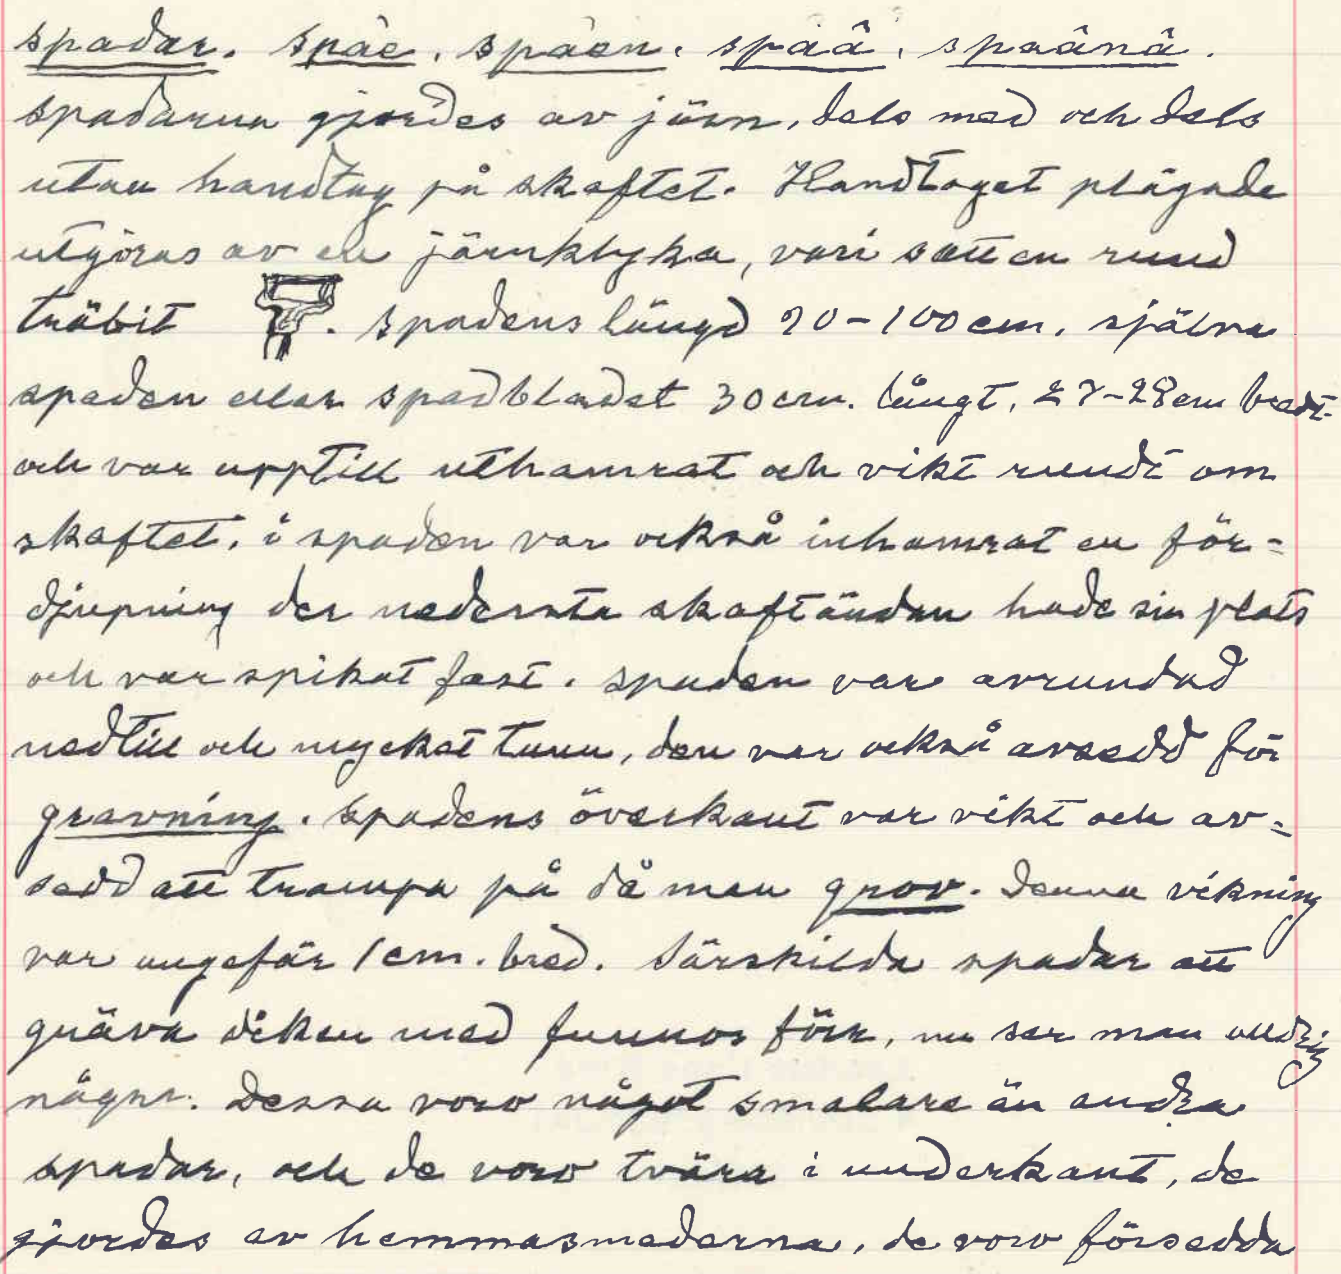 spadar. spàe. spàen. spåâ. spaânâ.
spadarna gjordes av järn, dels med och dels
utan handtag på skaftet. Handtaget plägade
utgöras av en järnklyka, vari satt en rund
träbit . spadens längd 90-100 cm. själva
spaden eller spadbladet 30 cm. långt, 27-28 cm bredt
och var upptill uthamrat och vikt rundt om
skaftet, i spaden var också inhamrat en för=
djupning der nedersta skaftändan hade sin plats
och var spikat fast. spaden var avrundad
nedtill och mycket tunn, den var också avsedd för
gravning. spadens överkant var vikt och av=
sedd att trampa på då man grov. Denna vikning
var ungefär 1 cm. bred. Särskilda spadar att
gräva diken med funnos förr, nu ser man aldrig
några. Dessa voro något smalare än andra
spadar, och de voro tvära i underkant, de
gjordes av hemmasmederna, de voro försedda